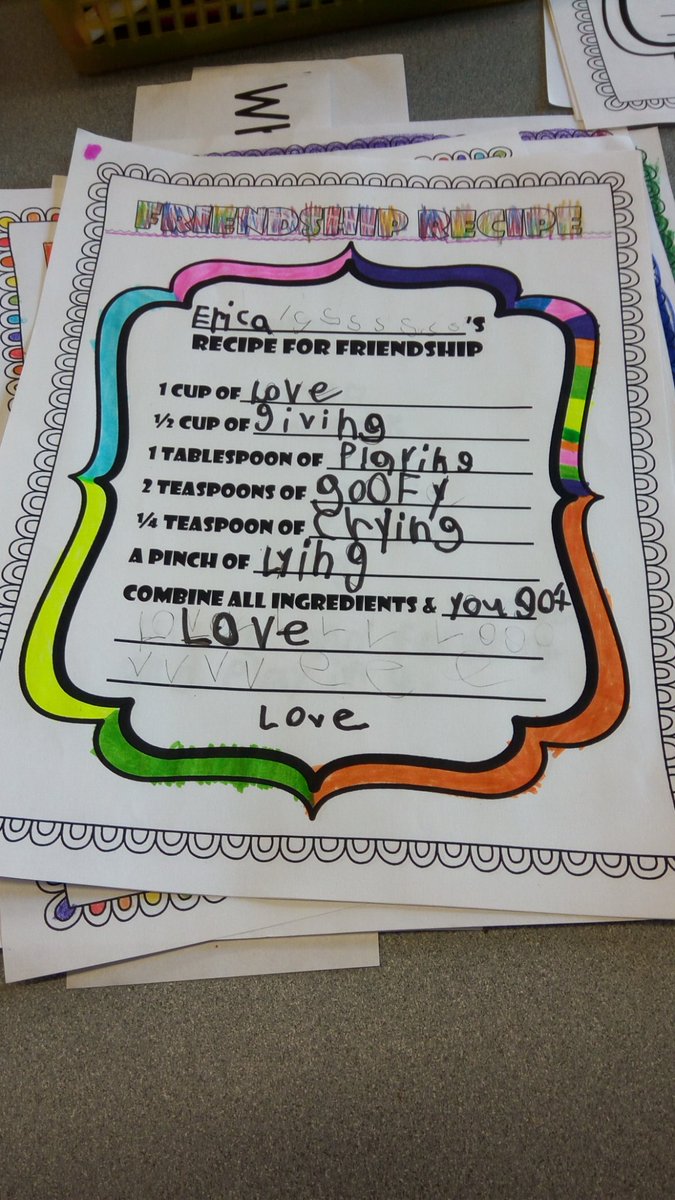 Wh
FRIENDSHIP RECIPE
Erica 's
RECIPE FOR FRIENDSHIP
1 CUP OF Love
½ CUP OF giving
1 TABLESPOON OF Plaring
2 TEASPOONS OF gooFy
¼ TEASPOON OF Crying
A PINCH OF Lying
COMBINE ALL INGREDIENTS & you got
Love
Love